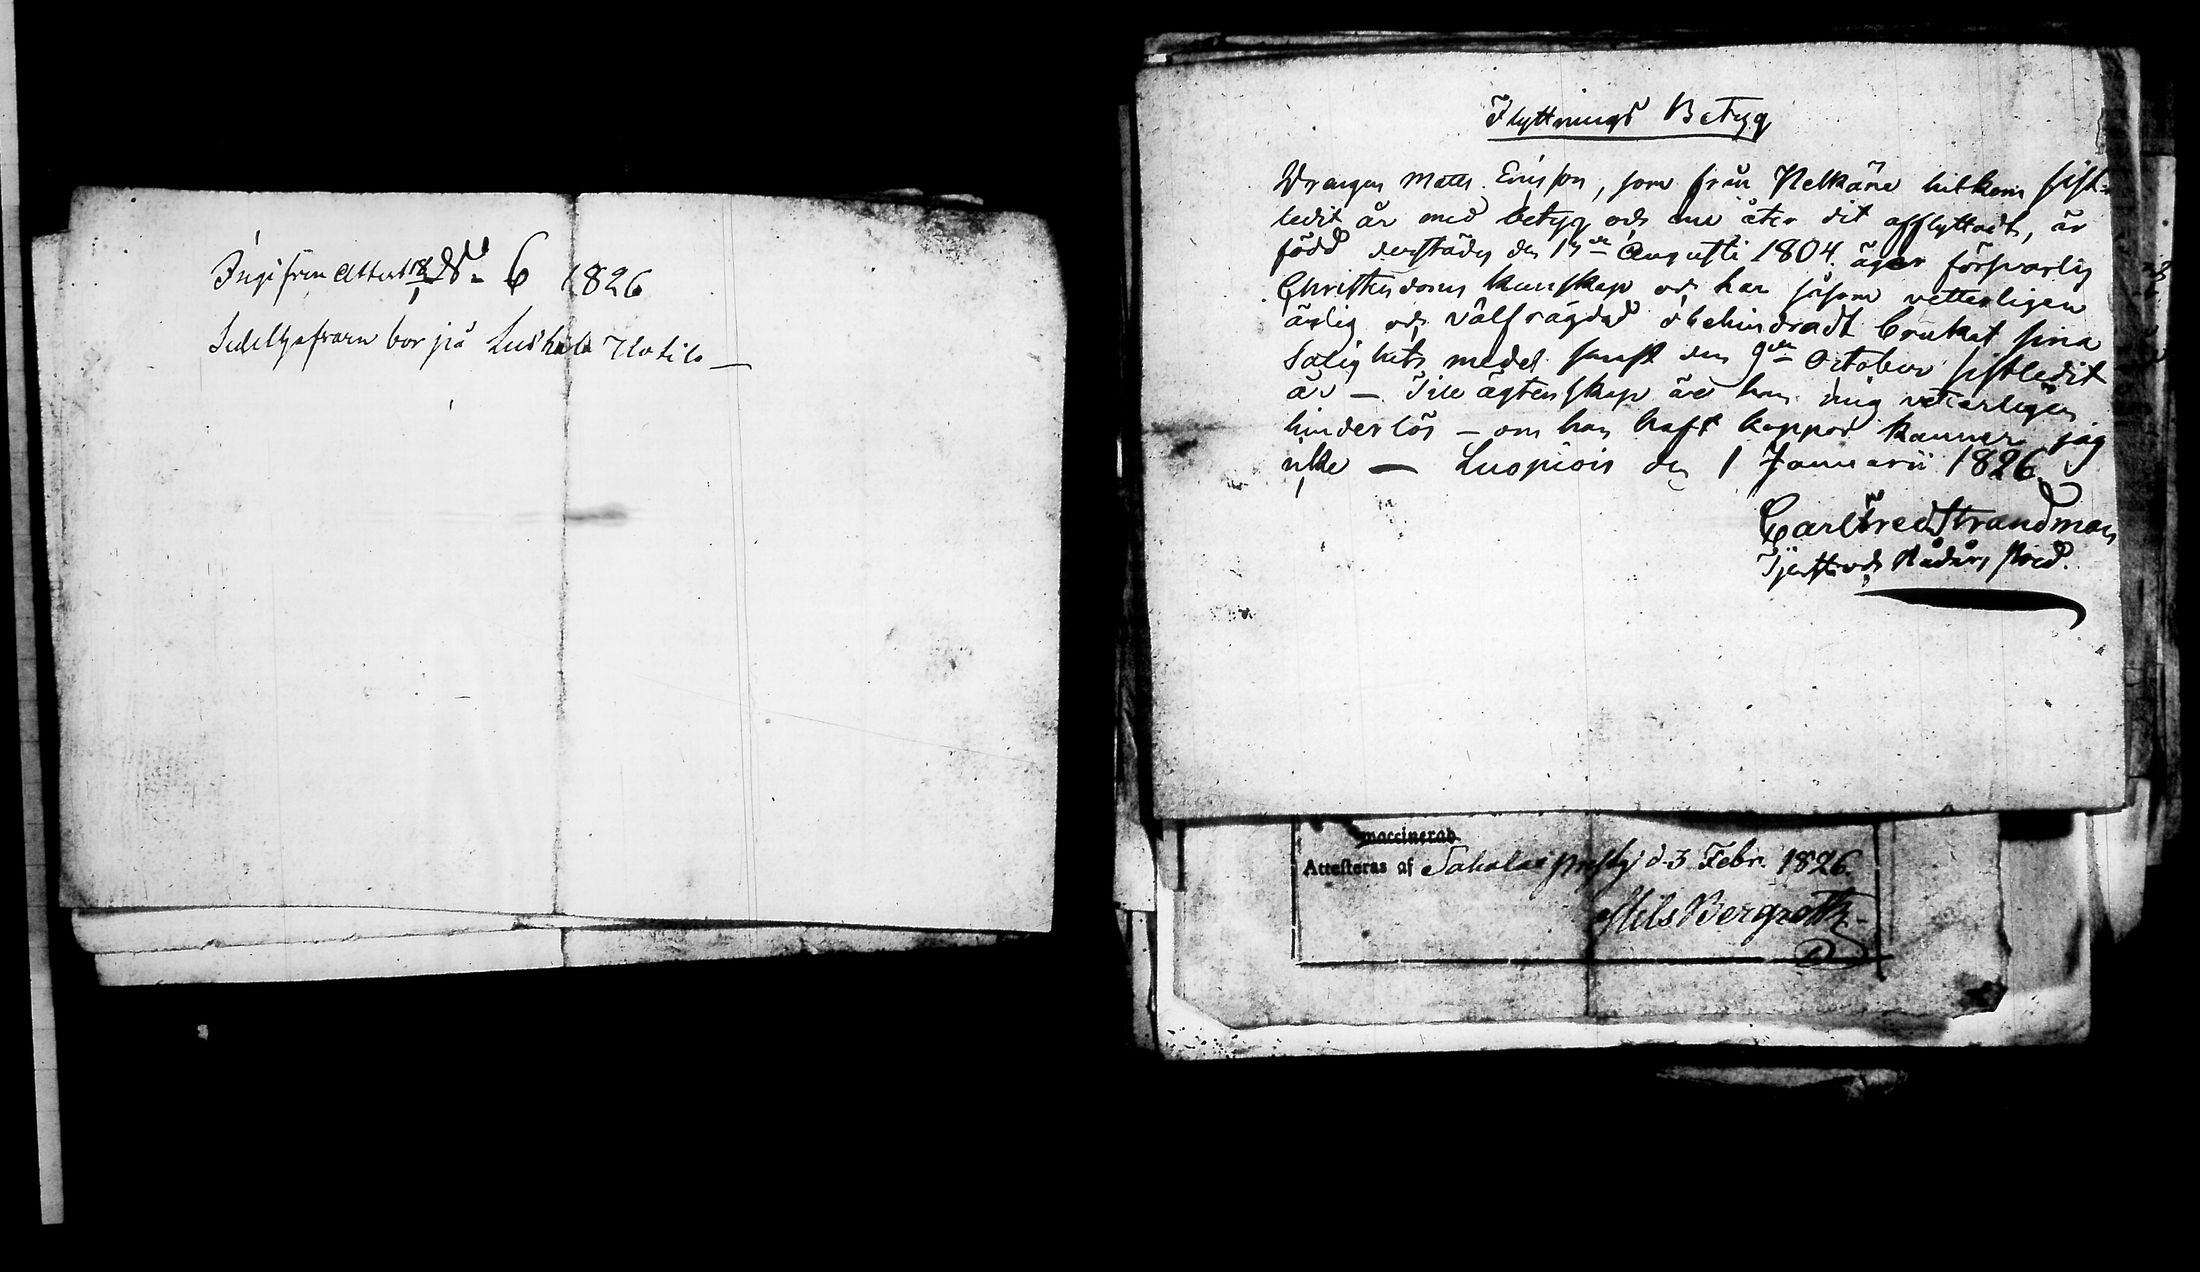 6 1826
bor på
Flyttnings Betyg
Drängen Matts Ericsson, som från Pelkäne hitkom sist-
ledit år med betyg och nu åter dit afflyttadt, är
född derstädes den 15de Augusti 1804 äger försvarlig
Christendoms kunskap och har såsom vetterligen
ärlig och välfrägdad obehindradt brukat sina
Salighets medel sinst den 9de October sistledit
år — Till ägtenskap är han mig veterligen
hinderlös — om han haft koppor känner jag
icke — Luopiois den 1 Januarii 1826
Carl Fred Strandman
vaccinerad.
Attesteras af Sahalax d. 3 Febr. 1826.
Nils Bergroth